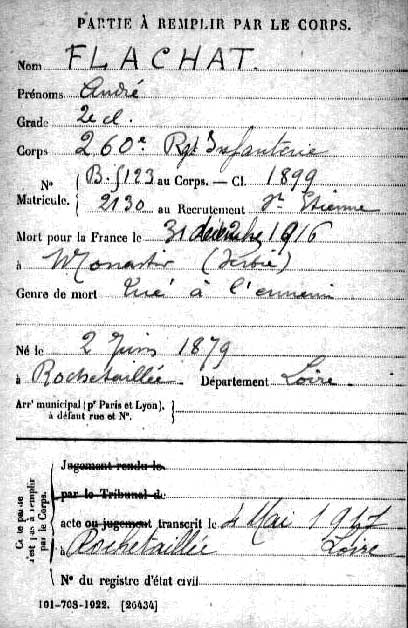 PARTIE À REMPLIR PAR LE CORPS.
Nom FLACHAT.
Prénoms André
Grade 2e cl.
Corps 260e Rgt Infanterie
N° Matricule. { B.5123 au Corps. — Cl. 1899
2130 au Recrutement St Etienne
Mort pour la France le 31 décembre 1916
à Monastir (Serbie)
Genre de mort Tué à l'ennemi
Né le 2 Juin 1879
à Rochetaillée Département Loire.
Arrt municipal (pr Paris et Lyon), à défaut rue et N°. }
Cette partie n'est pas à remplir par le Corps.
Jugement rendu le
par le Tribunal de
acte ou jugement transcrit le 4 Mai 1917
à Rochetaillée Loire
N° du registre d'état civil
101-708-1922. [26434]